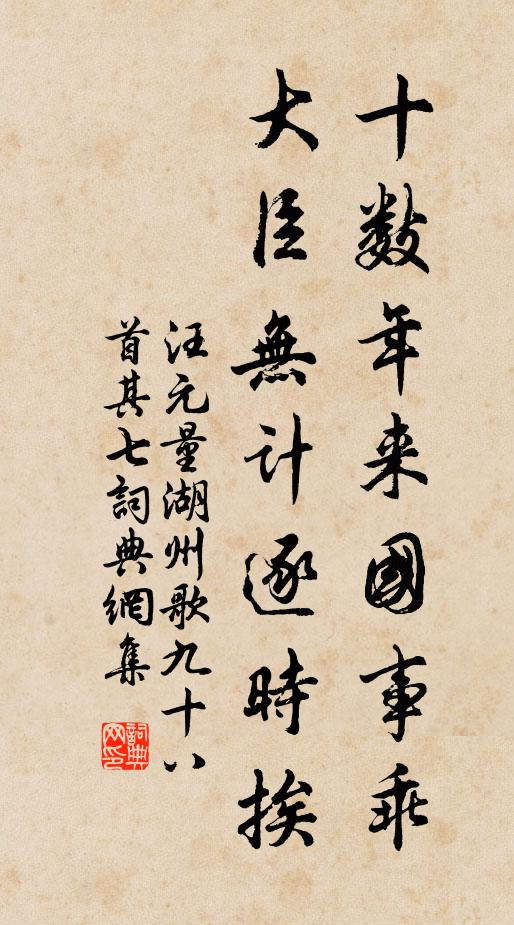 十数年来國事乖
大臣無计逐時挨
汪元量湖州歌九十八
首其七詞典網集
詞典
网印